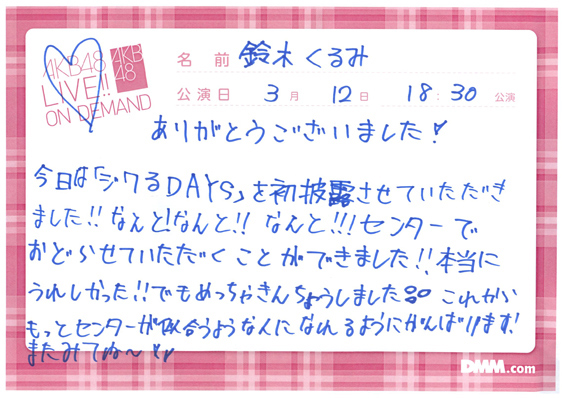 AKB48
LIVE!!
ON DEMAND
AKB
48
名前 鈴木くるみ
公演日 3月 12日 18:30 公演
ありがとうございました!
今日は「ジワるDAYS」を初披露させていただき
ました!!なんと!なんと!! なんと!!!センターで
おどらせていただくことができました!!本当に
うれしかった!!でもめっちゃきんちょうしました これから
もっとセンターが似合うような人になれるようにがんばります!
またみてね〜
DMM.com